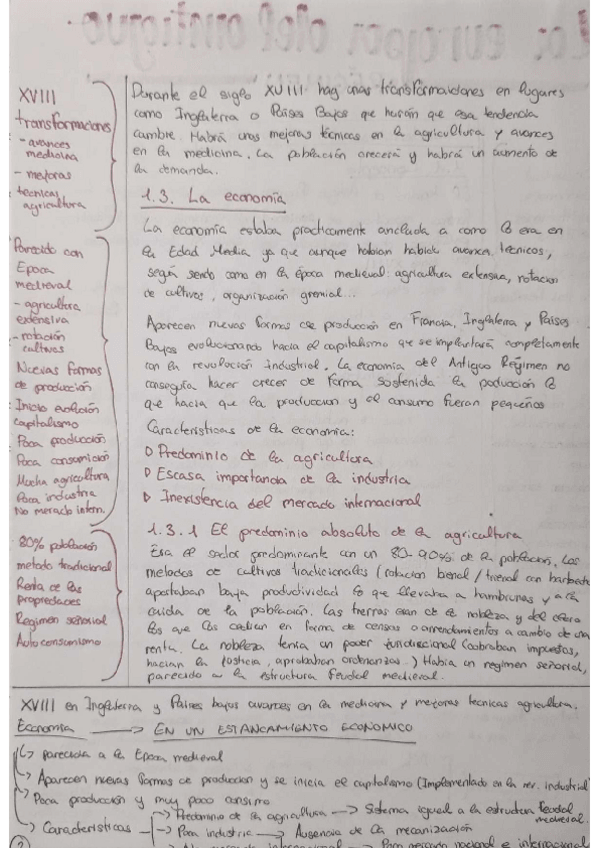 XVIII
transformaciones
- avances
medicina
- mejoras
tecnicas
agricultura
Parecido con
Epoca
medieval
- agricultura
extensiva
- rotación
cultivos
Nuevas formas
de producción
Inicio evolución
capitalismo
Poca producción
Poca consumición
Mucha agricultura
Poca industria
No mercado intern.
80% población
metodo tradicional
Renta de las
propiedades
Regimen señorial
Autoconsumismo
Durante el siglo XVIII hay unas transformaciones en lugares
como Inglaterra o Países Bajos que harán que esa tendencia
cambie. Habrá unas mejoras técnicas en la agricultura y avances
en la medicina. La población crecerá y habrá un aumento de
la demanda.
1.3. La economía
La economía estaba practicamente anclada a como lo era en
la Edad Media ya que aunque habian habido avances técnicos,
seguía siendo como en la época medieval: agricultura extensiva, rotacion
de cultivos, organización gremial...
Aparecen nuevas formas de producción en Francia, Inglaterra y Países
Bajos evolucionando hacia el capitalismo que se implantará completamente
con la revolución industrial. La economía del Antiguo Régimen no
conseguía hacer crecer de forma sostenida la producción lo
que hacia que la produccion y el consumo fueran pequeños
Características de la economía:
Predominio de la agricultura
Escasa importancia de la industria
Inexistencia del mercado internacional
1.3.1 El predominio absoluto de la agricultura
Era el sector predominante con un 80-90% de la población. Los
metodos de cultivos tradicionales (rotacion bienal / trienal con barbecho
aportaban baja productividad lo que llevaba a hambrunas y a la
caida de la población. Las tierras eran de la nobleza y del clero
los que las cedian en forma de censos o arrendamientos a cambio de una
renta. La nobleza tenia un poder jurisdiccional (cobraban impuestos,
hacian la justicia, aprobaban ordenanzas...) Había un regimen señorial,
parecido a la estructura feudal medieval.
XVIII en Inglaterra y Países bajos avances en la medicina y mejoras tecnicas agricultura.
Economia → EN UN ESTANCAMIENTO ECONOMICO
↳ parecida a la Epoca medieval
→ Aparecen nuevas formas de produccion y se inicia el capitalismo (Implementado en la rev. industrial
→ Poca producción y muy poco consumo
→ Características → Predominio de la agricultura → Sistema igual a la estructura feudal medieval.
→ Poca industria → Ausencia de la mecanización
mercado internacional → mercado nacional e internacional